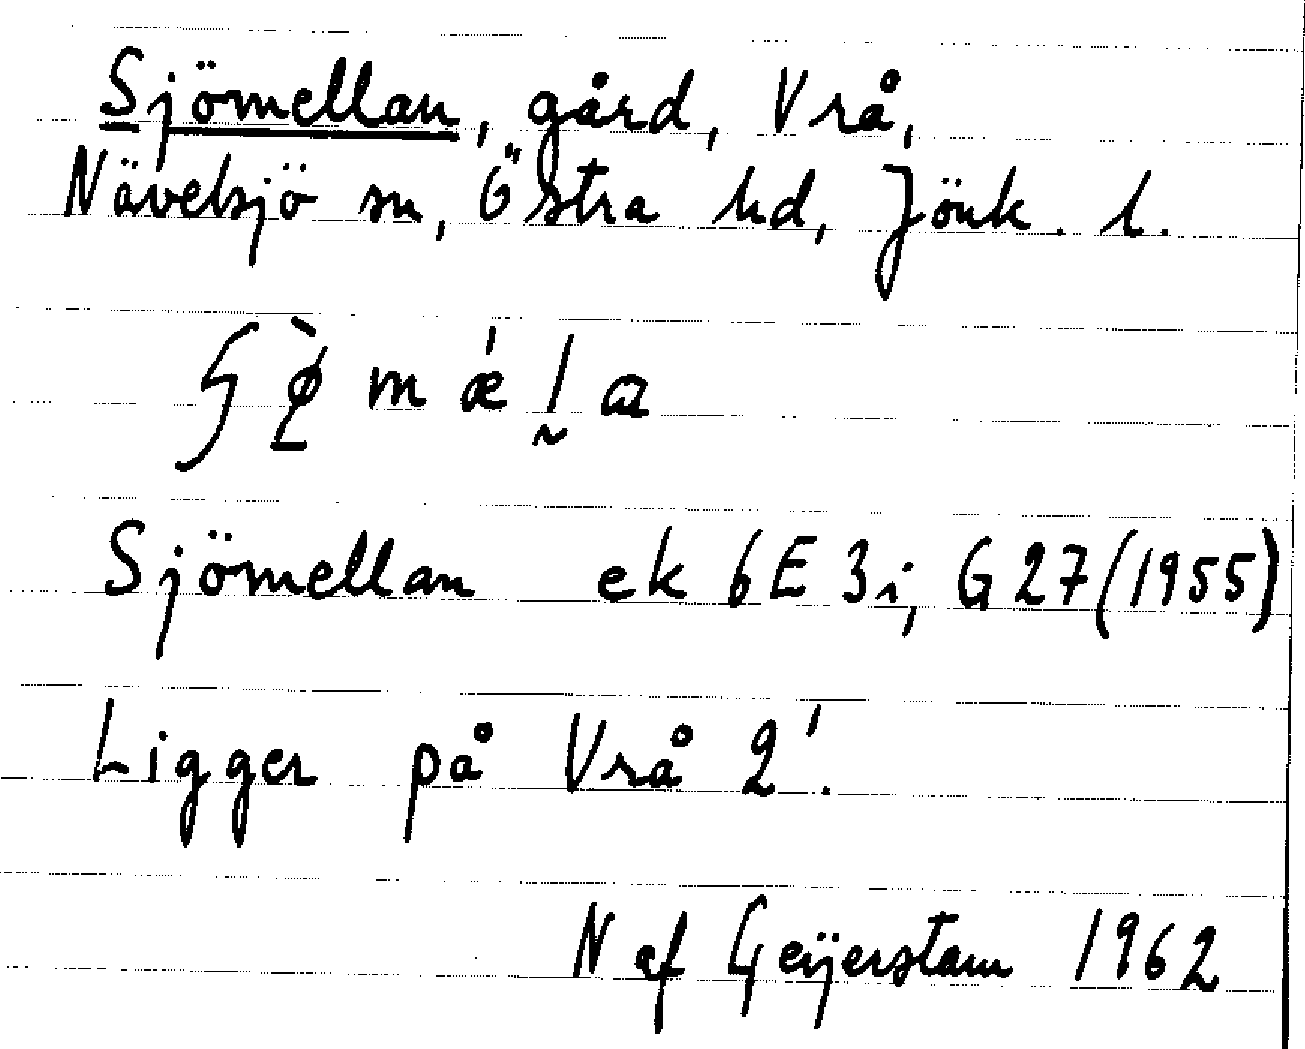 Sjömellan, gård, Vrå,
Nävelsjö sn, Östra hd, Jönk. l.
Sjömellan ek 6E 3i, G27 (1955)
Ligger på Vrå 2'.
N af Geijerstam 1962